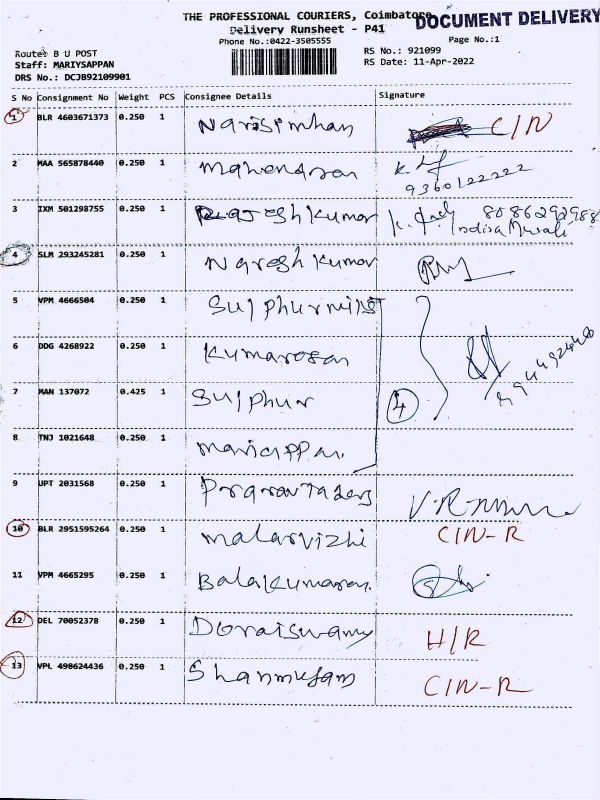 THE PROFESSIONAL COURIERS, Coimbatore
DOCUMENT DELIVERY
Delivery Runsheet - P41
Phone No.:0422-3505555
Page No.:1
Route: B U POST
RS No.: 921099
Staff: MARIYSAPPAN
RS Date: 11-Apr-2022
DRS No.: DCJB92109901
S No Consignment No Weight PCS Consignee Details Signature
1 BLR 4603671373 0.250 1 Narisimhan C/N
2 MAA 565878440 0.250 1 Mahendran
9360122222
3 IXM 501298755 0.250 1 Rajeshkumar
4 SLM 293245281 0.250 1 Nareshkumar
5 VPM 4666504 0.250 1 Sulphurmills
6 DDG 4268922 0.250 1 Kumaresan
7 MAN 137072 0.425 1 Sulphur 4
8 TNJ 1021648 0.250 1 Mariappan
9 UPT 2031568 0.250 1
10 BLR 2951595264 0.250 1 Malarvizhi C/N-R
11 VPM 4665295 0.250 1 Balakumaran
12 DEL 70052378 0.250 1 Doraiswamy H/R
13 VPL 498624436 0.250 1 Shanmugam C/N-R